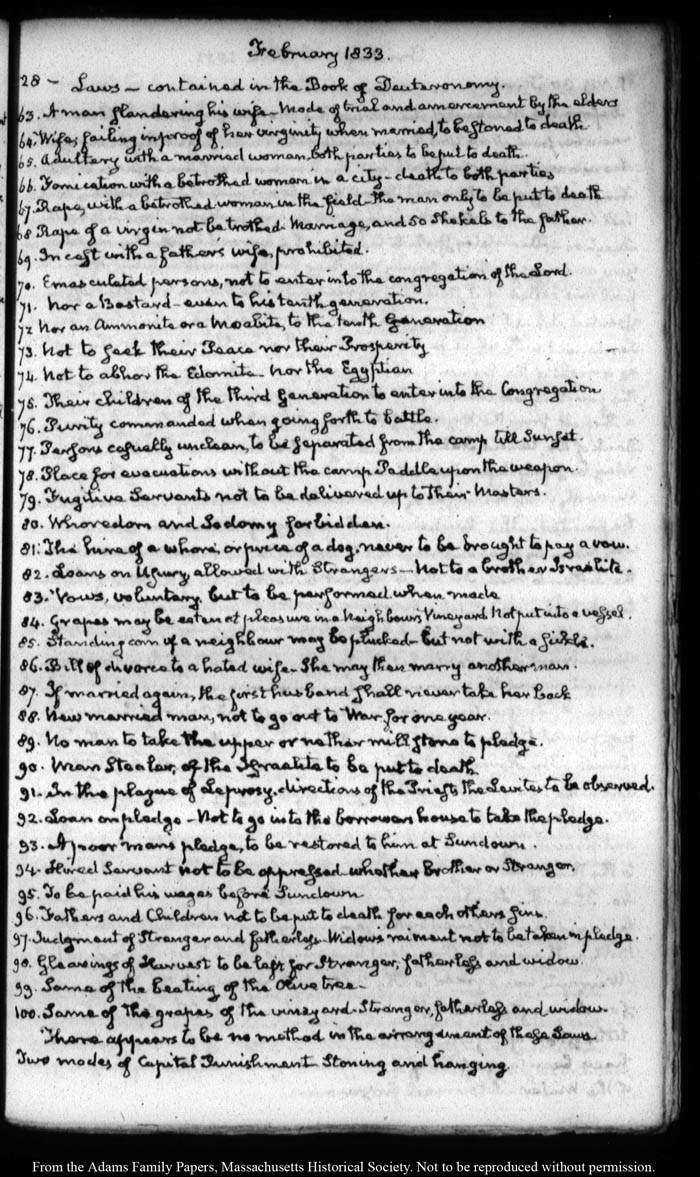 February 1833.
28 - Laws - contained in the Book of Deuteronomy.
63. A man slandering his wife - Mode of trial and amercement by the elders
64. Wife, failing in proof of her virginity when married, to be stoned to death
65. Adultery with a married woman, both parties to be put to death.
66. Fornication with a betrothed woman in a city - death to both parties
67. Rape, with a betrothed woman in the field - the man only to be put to death
68 Rape of a virgin not betrothed. Marriage, and 50 Shekels to the father.
69. Incest with a father's wife, prohibited.
70. Emasculated persons, not to enter into the congregation of the Lord.
71. Nor a Bastard - even to his tenth generation.
72 Nor an Ammonite or a Moabite, to the tenth Generation
73. Not to seek their Peace nor their Prosperity
74. Not to abhor the Edomite nor the Egyptian
75. Their children of the third Generation to enter into the Congregation
76. Purity commanded when going forth to battle.
77. Persons casually unclean, to be separated from the camp till Sunset.
78. Place for evacuations without the camp Paddle upon the weapon.
79. Fugitive Servants not to be delivered up to their Masters.
80. Whoredom and Sodomy forbidden.
81. The hire of a whore, or price of a dog, never to be brought to pay a vow.
82. Loans on Usury, allowed with Strangers - Not to a brother Israelite.
83. Vows, voluntary, but to be performed when made
84. Grapes may be eaten at pleasure in a Neighbours Vineyard. Not put into a vessel.
85. Standing corn of a neighbour may be plucked - but not with a sickle.
86. Bill of divorce to a hated wife - She may then marry another man.
87. If married again, the first husband shall never take her back
88. New married man, not to go out to War, for one year.
89. No man to take the upper or nether millstone to pledge.
90. Man Stealer, of the Israelite to be put to death
91. In the plague of Leprosy, directions of the Priests the Levites to be observed.
92. Loan on pledge - Not to go into the borrowers house to take the pledge.
93. A poor mans pledge, to be restored to him at Sundown.
94. Hired Servant not to be oppressed whether brother or Stranger.
95. To be paid his wages before Sundown
96. Fathers and Children not to be put to death for each others sins.
97. Judgment of Stranger and fatherless. Widows raiment not to be taken in pledge.
98. Gleanings of Harvest to be left for Stranger, fatherless and widow.
99. Same of the beating of the Olive tree -
100. Same of the grapes of the vineyard. Stranger, fatherless and widow.
There appears to be no method in the arrangement of these Laws.
Two modes of Capital Punishment Stoning and hanging.
From the Adams Family Papers, Massachusetts Historical Society. Not to be reproduced without permission.